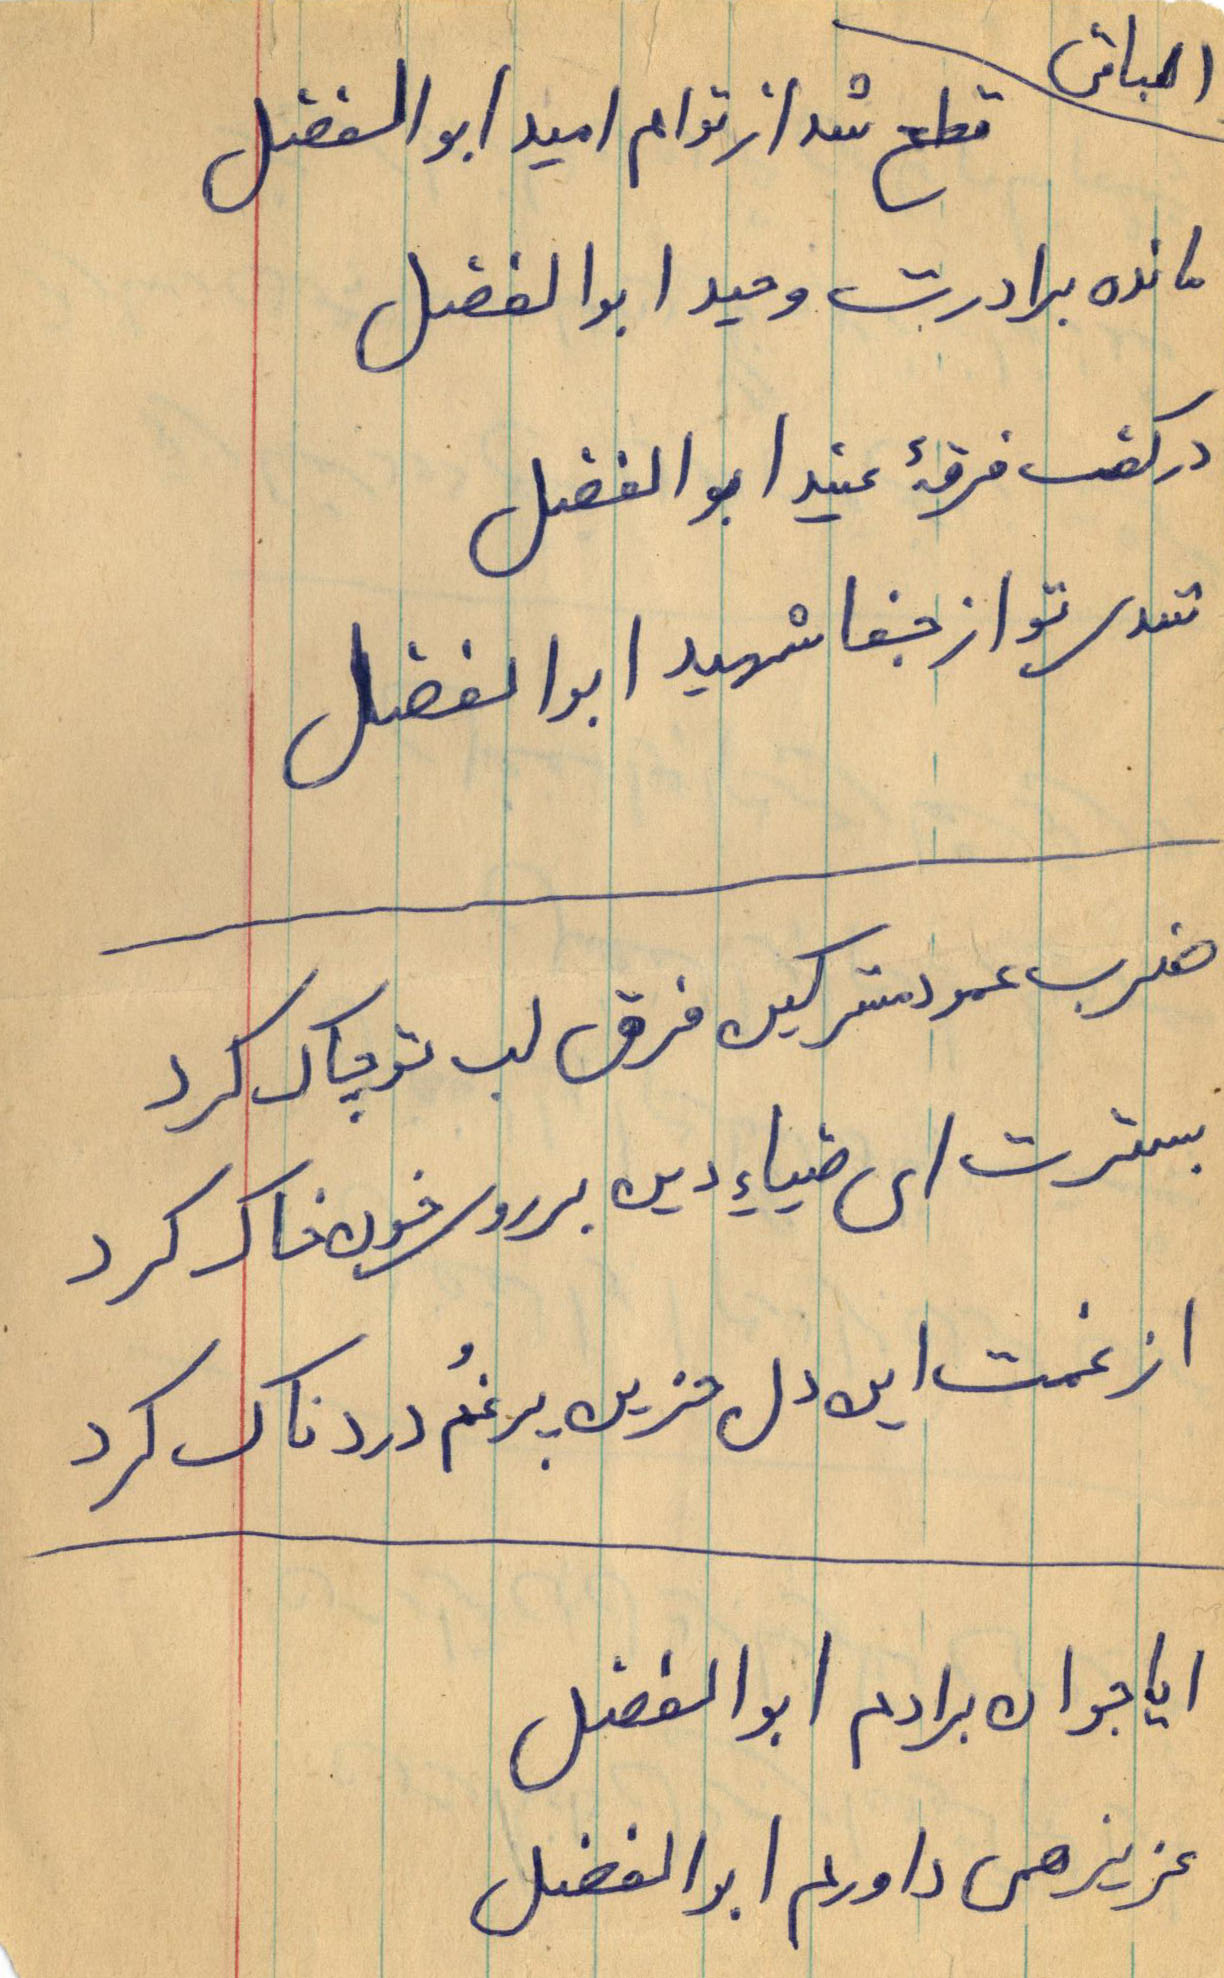 الباقی
قطع شد از توام امید ابوالفضل
مانده برادرت وحید ابوالفضل
در کف فرقهٔ عنید ابوالفضل
شدی تو از جفا شهید ابوالفضل
ضرب عمود مشرکین فرق لب تو چاک کرد
بسترت ای ضیاءِ دین بر روی خون خاک کرد
از غمت این دل حزین پر غمُ درد ناک کرد
ایا جوان برادرم ابوالفضل
عزیز همی داورم ابوالفضل